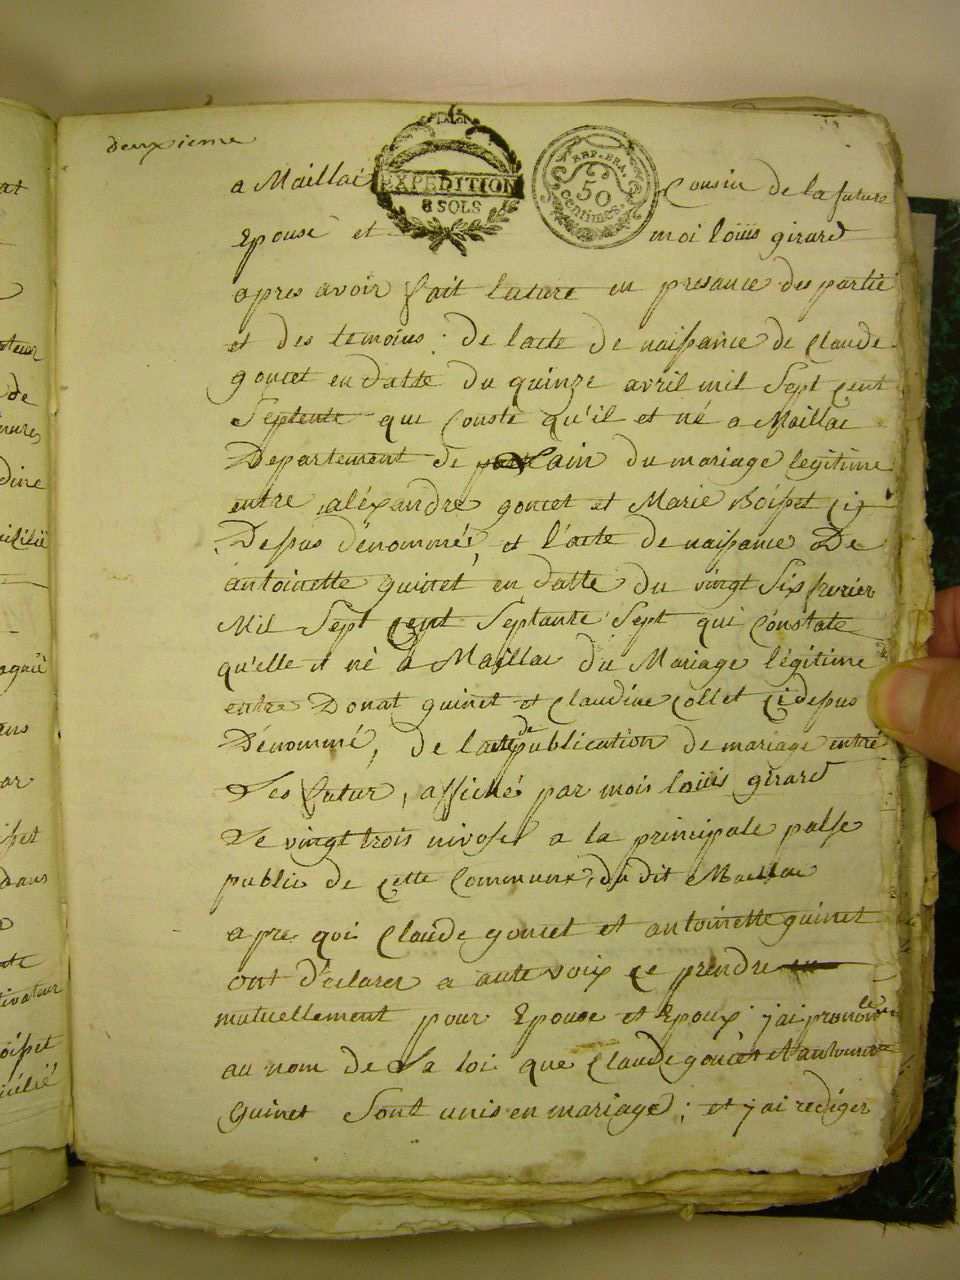 deuxieme
a Maillac
LA LOI
EXPEDITION
8 SOLS
REP. FRA.
50
centimes.
Cousin de la future
Epouse et
moi louiis girard
apres avoir fait lature en presance des partie
et des temoins : de lacte de naissance de Claude
goncet en datte du quinze avril mil Sept Cent
Septente que Conste qu'il et né a Maillac
Departement de lain du mariage legitime
entre aléxandre goncet et Marie Boisset Ci
Dessus dénommé, et l'acte de naissance De
antoinette guinet en datte du vingt Six fevrier
Mil Sept Cent Septante Sept qui Constate
qu'elle et né a Maillac du Mariage légitime
entre Donat guinet et Claudine Collet Ci dessus
Dénommé, de lacte de publication de mariage entre
Les futur, affiché par mois louiis girard
Le vingt trois nivose a la principale passe
public de cette Commune, du dit Maillac
apre qoi Claude goncet et antoinette guinet
ont d'éclarer a aute voix ce prendre
mutuellement pour Epouse et Epoux ; j'ai prononcé
au nom de La loi que Claude goncet et antoinette
Guinet Sont unis en mariage ; et j'ai rediger